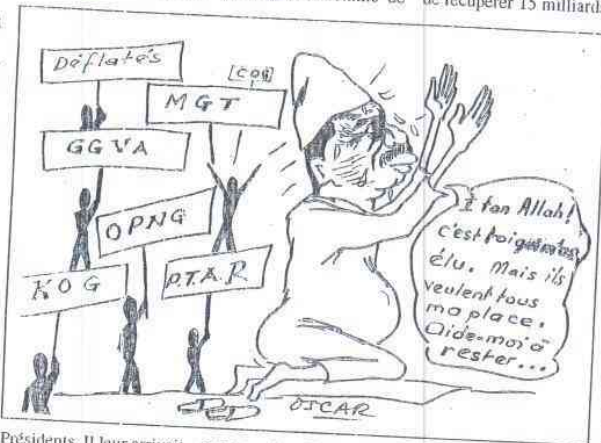 de récupérer 15 milliards
Déflatés
[COG]
MGT
GGVA
OPNG
KOG
P.T.A.R
I tan Allah!
c'est
élu. Mais ils
veulent tous
ma place.
Aide-moi à
rester...
OSCAR
Présidents. Il leur